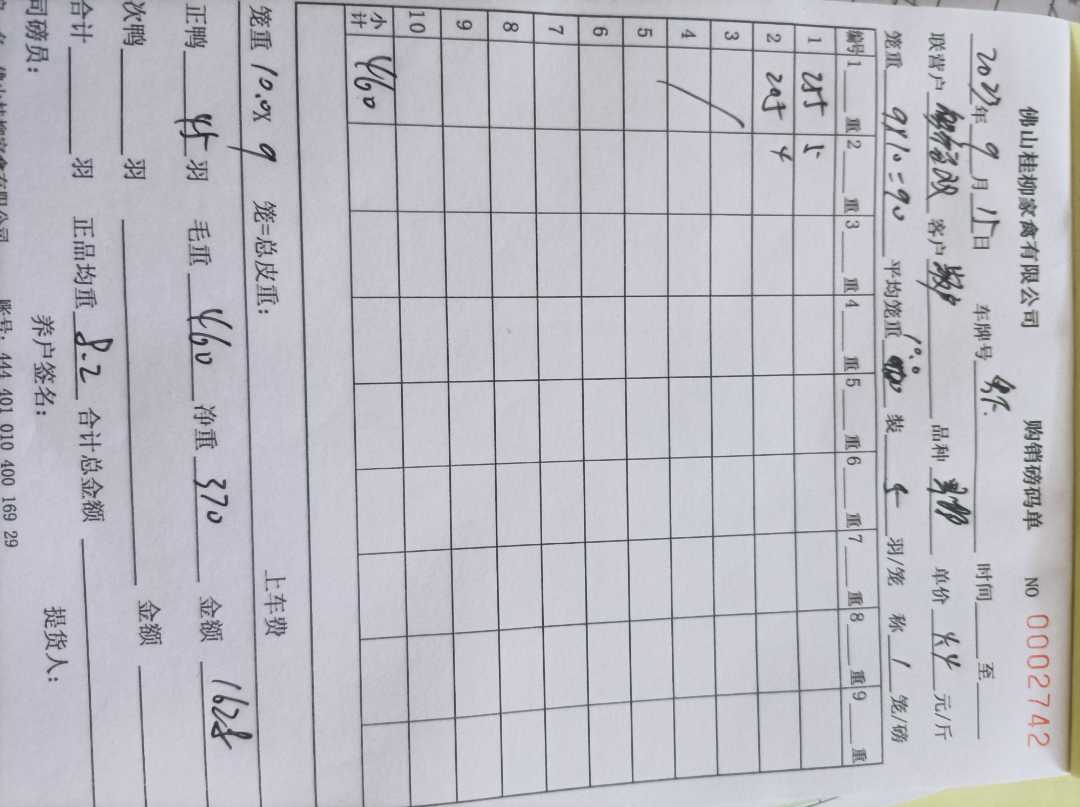 佛山桂柳家禽有限公司 购销磅码单 NO 0002742
年 9 月 15 日 车牌号 时间 至
联营户 客户 品种 单价 4.4 元/斤
笼重 9×10=90 平均笼重 10.0 装 5 羽/笼 称 1 笼/磅
编号 1 重 2 重 3 重 4 重 5 重 6 重 7 重 8 重 9 重
1 255 5
2 205 4
3
4
5
6
7
8
9
10
小计 460
笼重 10.0× 9 笼=总皮重: 上车费
正鸭 45 羽 毛重 460 净重 370 金额 1628
次鸭 羽 金额
合计 羽 正品均重 8.2 合计总金额
司磅员: 养户签名: 提货人:
佛山桂柳家禽有限公司 账号: 444 401 010 400 169 29